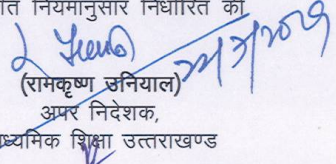 नियमानुसार निर्धारित की
(रामकृष्ण उनियाल)
अपर निदेशक,
ध्यमिक शिक्षा उत्तराखण्ड